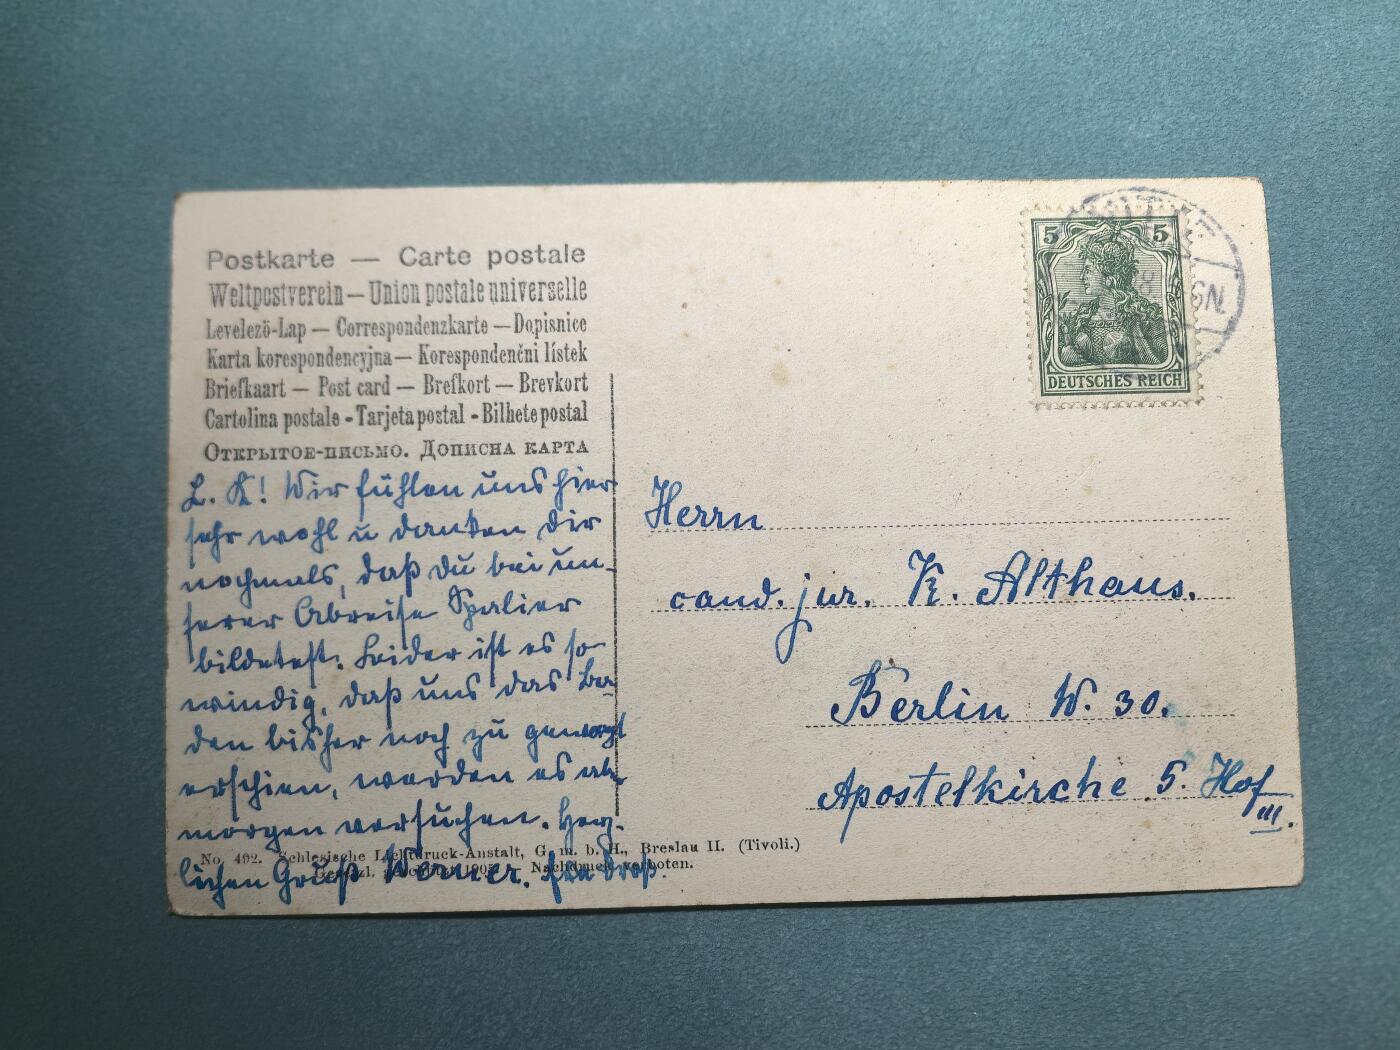 Postkarte — Carte postale
Weltpostverein — Union postale universelle
Levelezö-Lap — Correspondenzkarte — Dopisnice
Karta korespondencyjna — Korespondenčni lístek
Briefkaart — Post card — Brefkort — Brevkort
Cartolina postale - Tarjeta postal - Bilhete postal
Открытое-письмо. Дописна карта
L. K! Wir fühlen uns hier
sehr wohl u danken dir
nochmals, daß du bei un-
serer Abreise Spalier
bildetest. Leider ist es so
windig, daß uns das Ba-
den bisher noch zu gewagt
erschien, werden es aber
morgen versuchen. Herz-
lichen Gruß Werner.
5 5
DEUTSCHES REICH
Herrn
cand. jur. K. Althaus.
Berlin W. 30.
Apostelkirche 5. Hof
III.
No. 492. Schlesische Lichtdruck-Anstalt, G. m. b. H., Breslau II. (Tivoli.)
Nachdruck verboten.